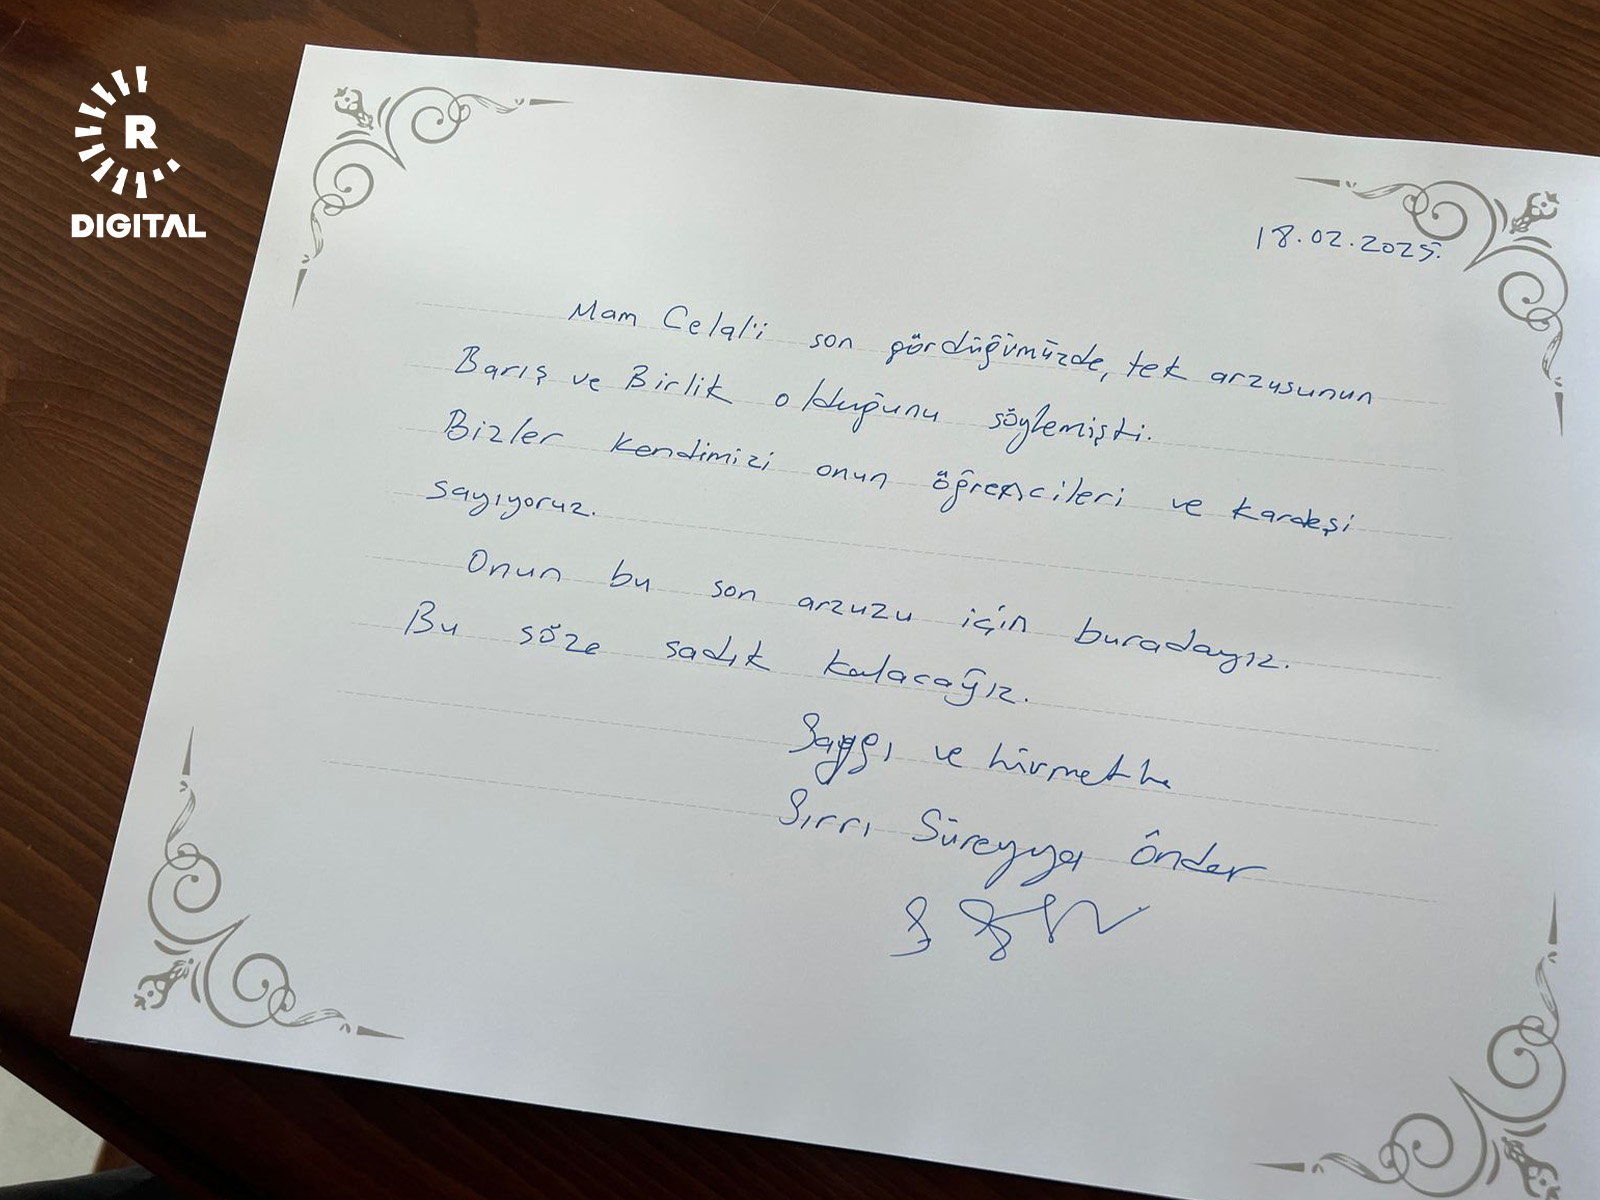 R
DIGITAL
18.02.2025.
Mam Celal'i son gördüğümüzde, tek arzusunun
Barış ve Birlik olduğunu söylemişti.
Bizler kendimizi onun öğrencileri ve kardeşi
sayıyoruz.
Onun bu son arzuzu için buradayız.
Bu söze sadık kalacağız.
Saygı ve hürmetle
Sırrı Süreyya Önder